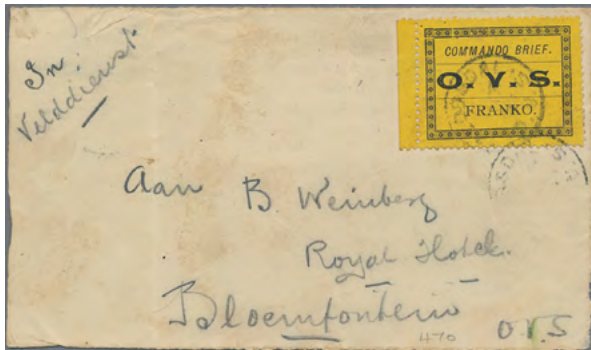 In:
Velddienst
COMMANDO BRIEF.
O. V. S.
FRANKO.
Aan B. Weinberg
Royal Hotel.
Bloemfontein
470
O.V.S